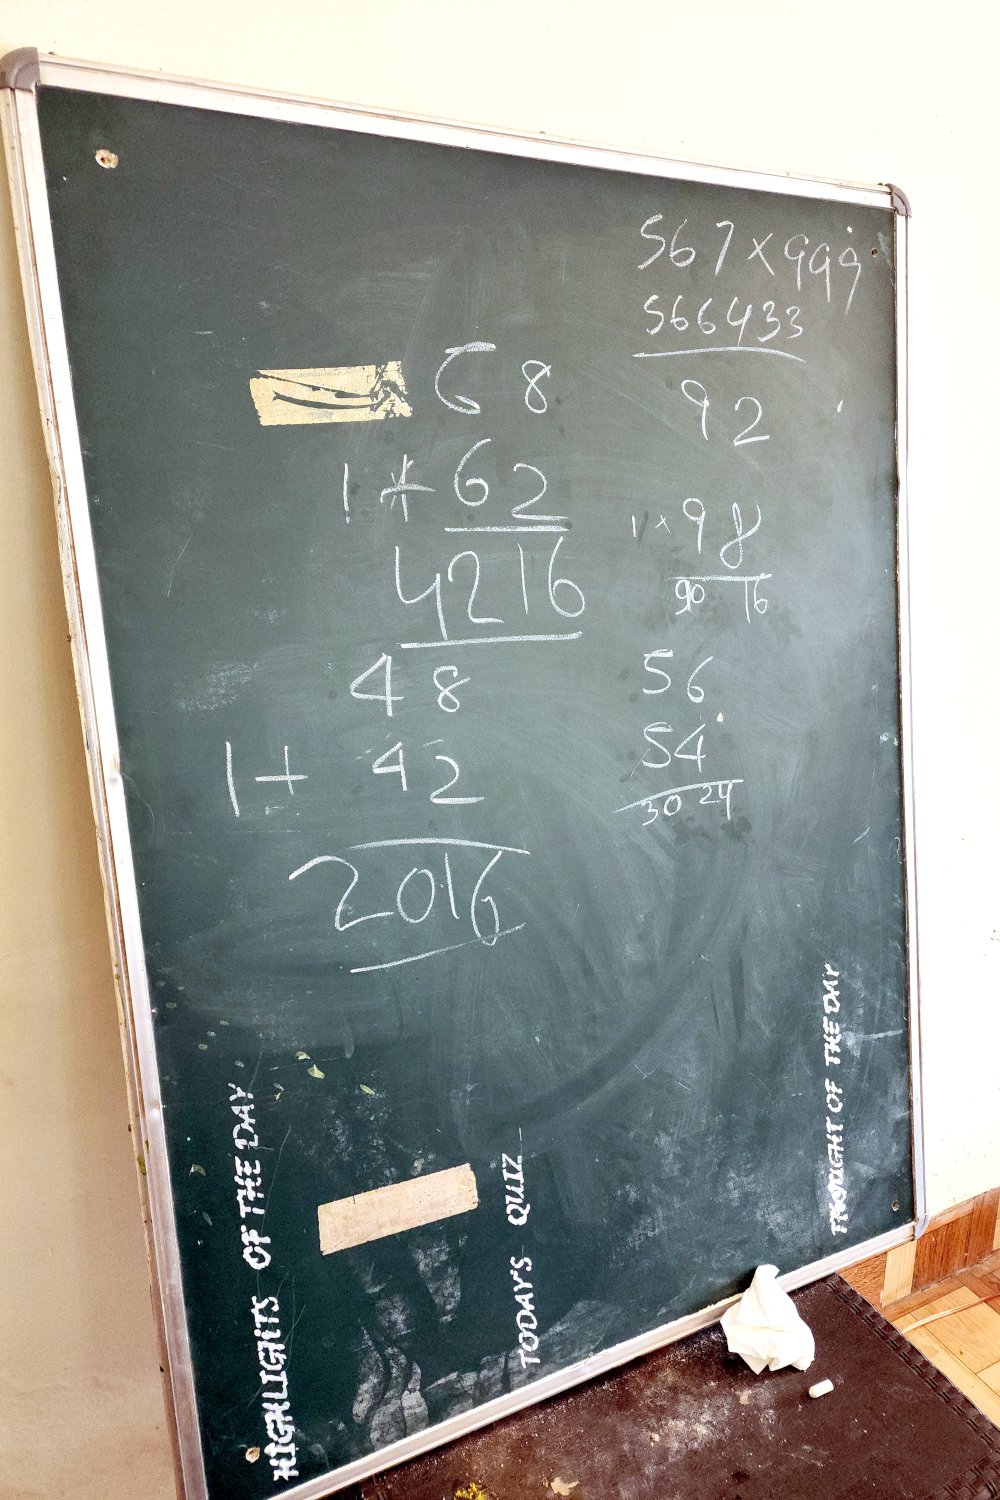 567×999
566433
92
1×98
90 16
56
54
30 24
68
1+62
4216
48
1+ 42
2016
HIGHLIGHTS OF THE DAY
TODAY'S QUIZ
THOUGHT OF THE DAY